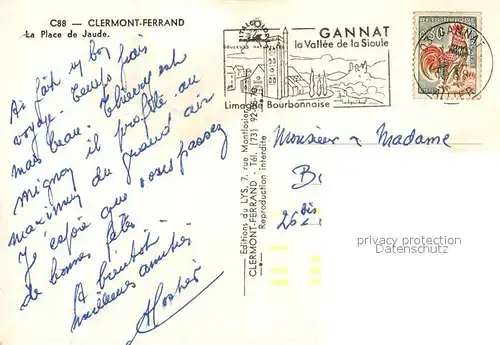 C88 — CLERMONT-FERRAND
La Place de Jaude.
Ai fait 1 bon
voyage. Temps frais
mais beau. Thierry est
mignon il profite au
maximum du grand air
J'espère que vous passez
de bonnes fêtes
A bientôt
meilleures amitiés
Editions du LYS, 7, rue Montlosier
CLERMONT-FERRAND - Tél. (73) 92.
Reproduction interdite
GANNAT
la Vallée de la Sioule
Limagne Bourbonnaise
GANNAT
ALLIER
Monsieur & Madame
Bi
26 bis
privacy protection
Datenschutz